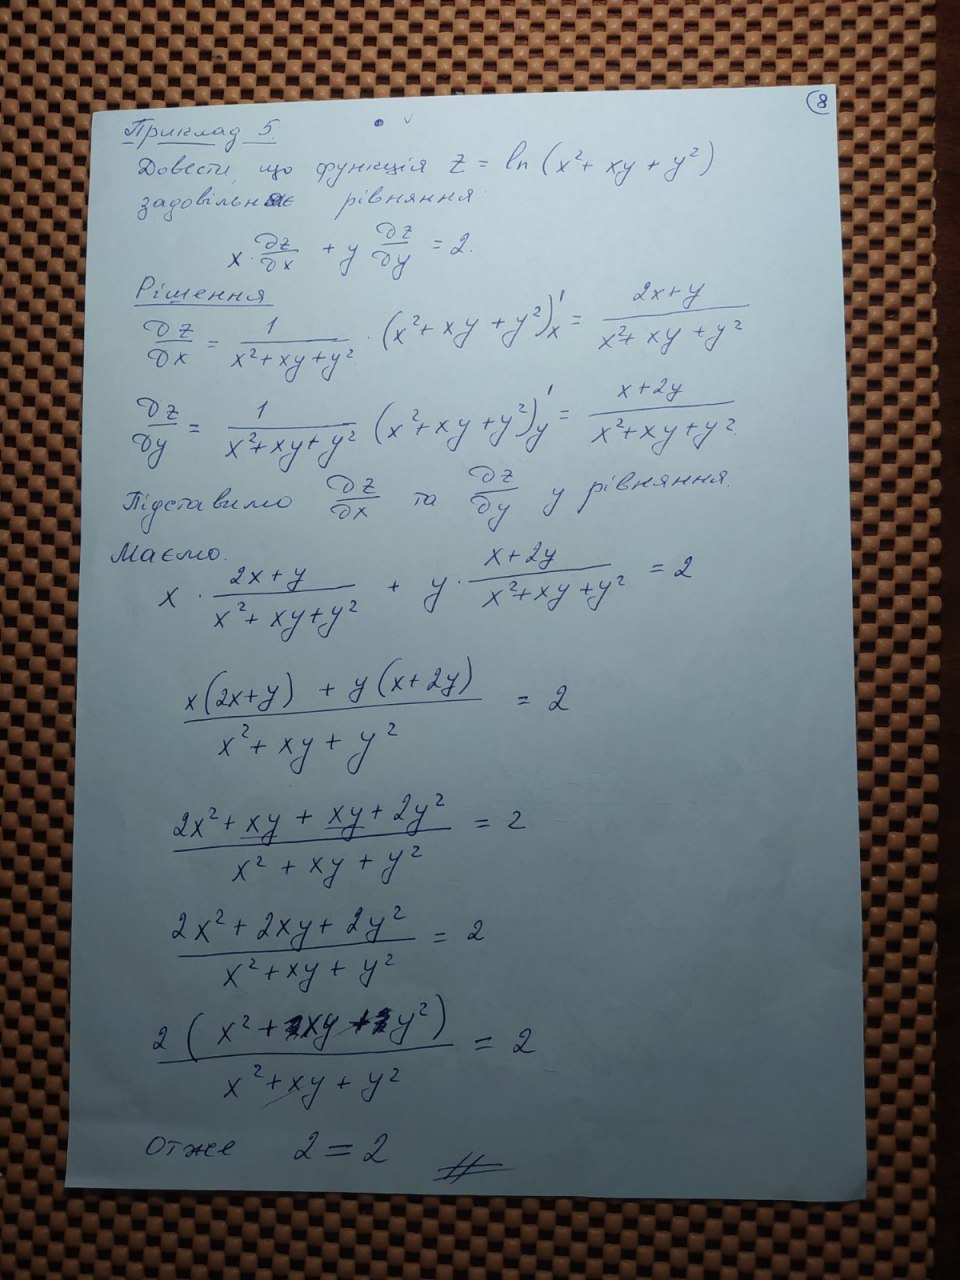 8
Приклад 5.
Довести, що функція z = ln (x² + xy + y²)
задовільняє рівняння:
x · ∂z/∂x + y ∂z/∂y = 2.
Рішення
∂z/∂x = 1/(x² + xy + y²) · (x² + xy + y²)'ₓ = (2x + y)/(x² + xy + y²)
∂z/∂y = 1/(x² + xy + y²) (x² + xy + y²)'y = (x + 2y)/(x² + xy + y²).
Підставимо ∂z/∂x та ∂z/∂y у рівняння.
Маємо.
x · (2x + y)/(x² + xy + y²) + y · (x + 2y)/(x² + xy + y²) = 2
(x(2x + y) + y(x + 2y))/(x² + xy + y²) = 2
(2x² + xy + xy + 2y²)/(x² + xy + y²) = 2
(2x² + 2xy + 2y²)/(x² + xy + y²) = 2
2(x² + xy + y²)/(x² + xy + y²) = 2
Отже 2 = 2